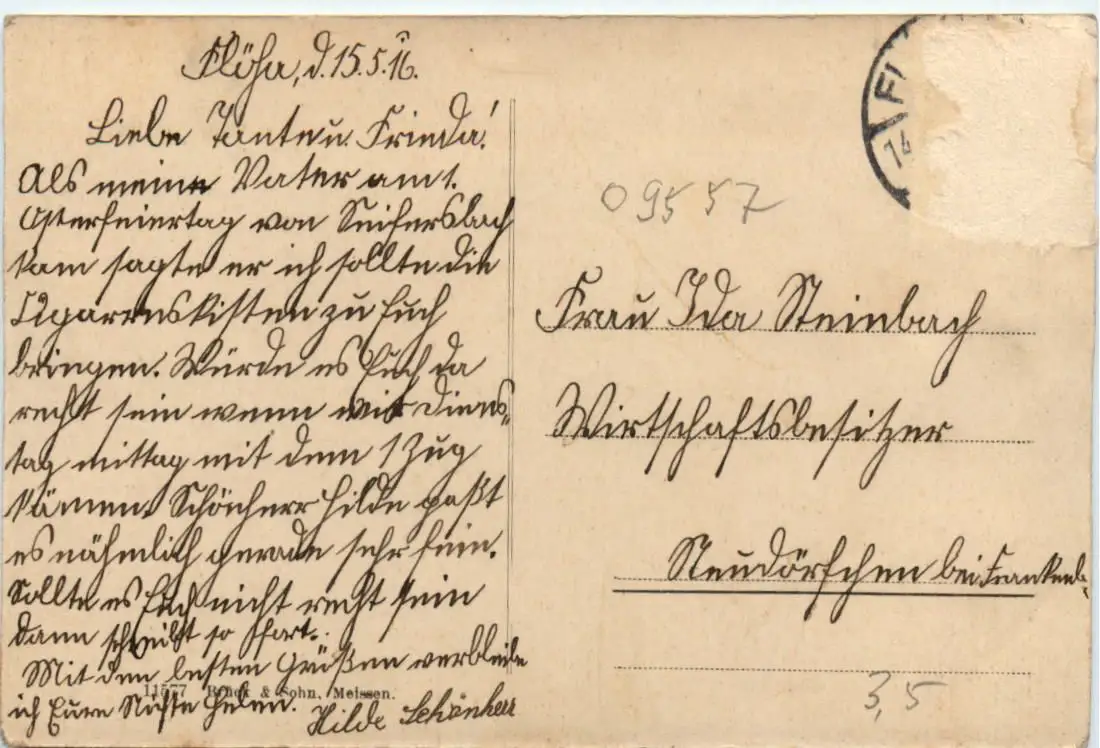 Flöha, d. 15.5.16.
Liebe Tante u. Frieda!
Als meine Vater am 1.
Osterfeiertag von Seifersbach
kam sagte er ich sollte die
Zigarrenskisten zu Euch
bringen. Würde es Euch da
recht sein wenn wir Diens„
tag mittag mit dem 1 Zug
kämen. Schönherr Hilde paßt
es nähmlich gerade sehr fein.
Sollte es Euch nicht recht sein
dann schreibt so
Mit den besten Grüßen verbleibe
ich Eure Nichte Helen.
Hilde Schönherr
11577 Brück & Sohn, Meissen.
FL
14
09557
Frau Ida Steinbach
Wirtschaftsbesitzer
Neudörfchen bei Frankenb.
3,5